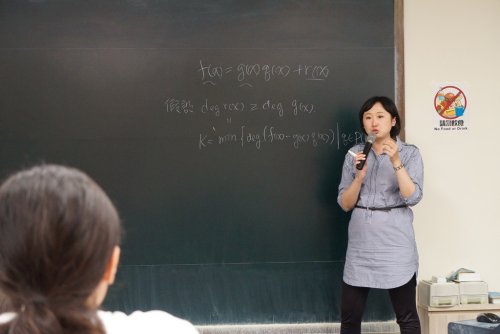 f(x) = g(x) q(x) + r(x)
假設 deg r(x) ≥ deg g(x)
"
k = min { deg(f(x) - g(x) q(x)) | q ∈ P
請勿飲食
No Food or Drink